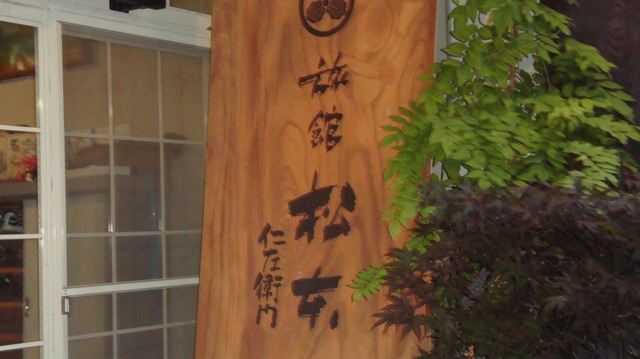 旅館
松本
仁左衛門